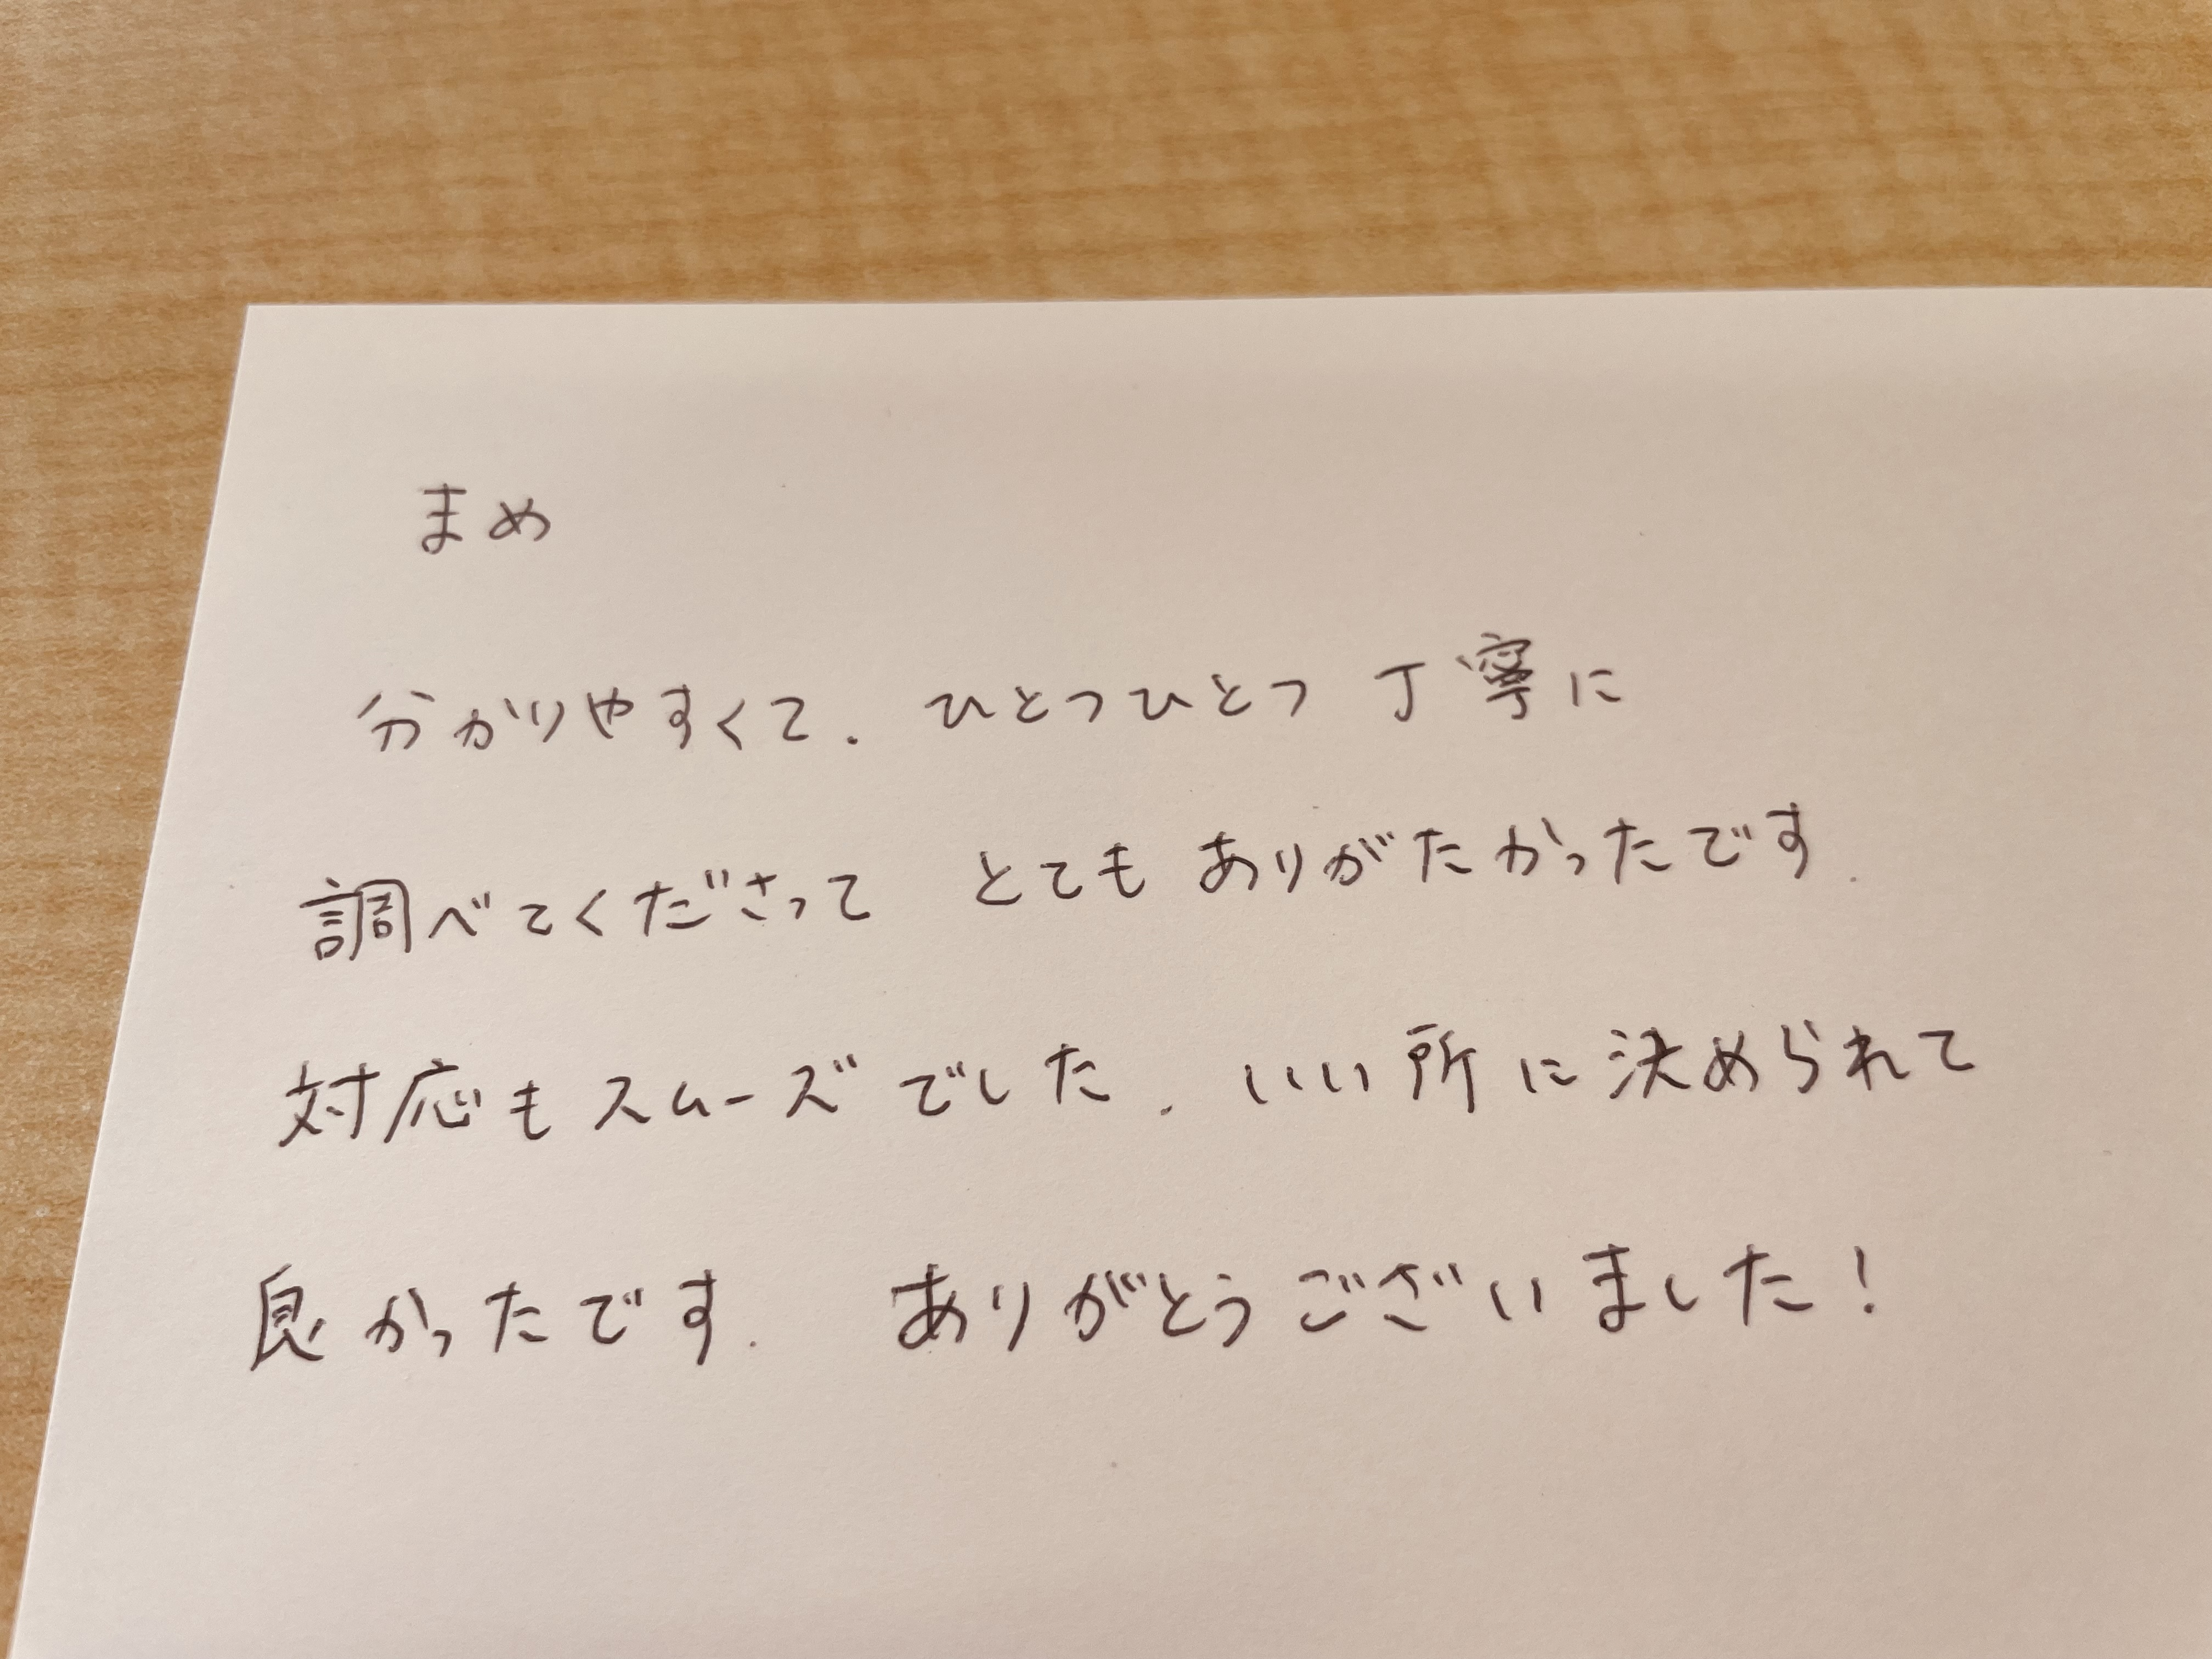 まめ
分かりやすくて. ひとつひとつ 丁寧に
調べてくださって とても ありがたかったです.
対応もスムーズでした. いい所に決められて
良かったです. ありがとうございました!